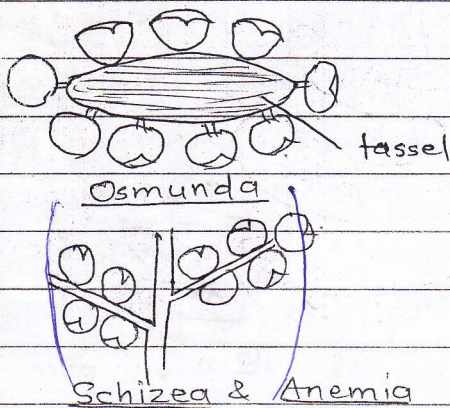 tassel
Osmunda
Schizea & Anemia